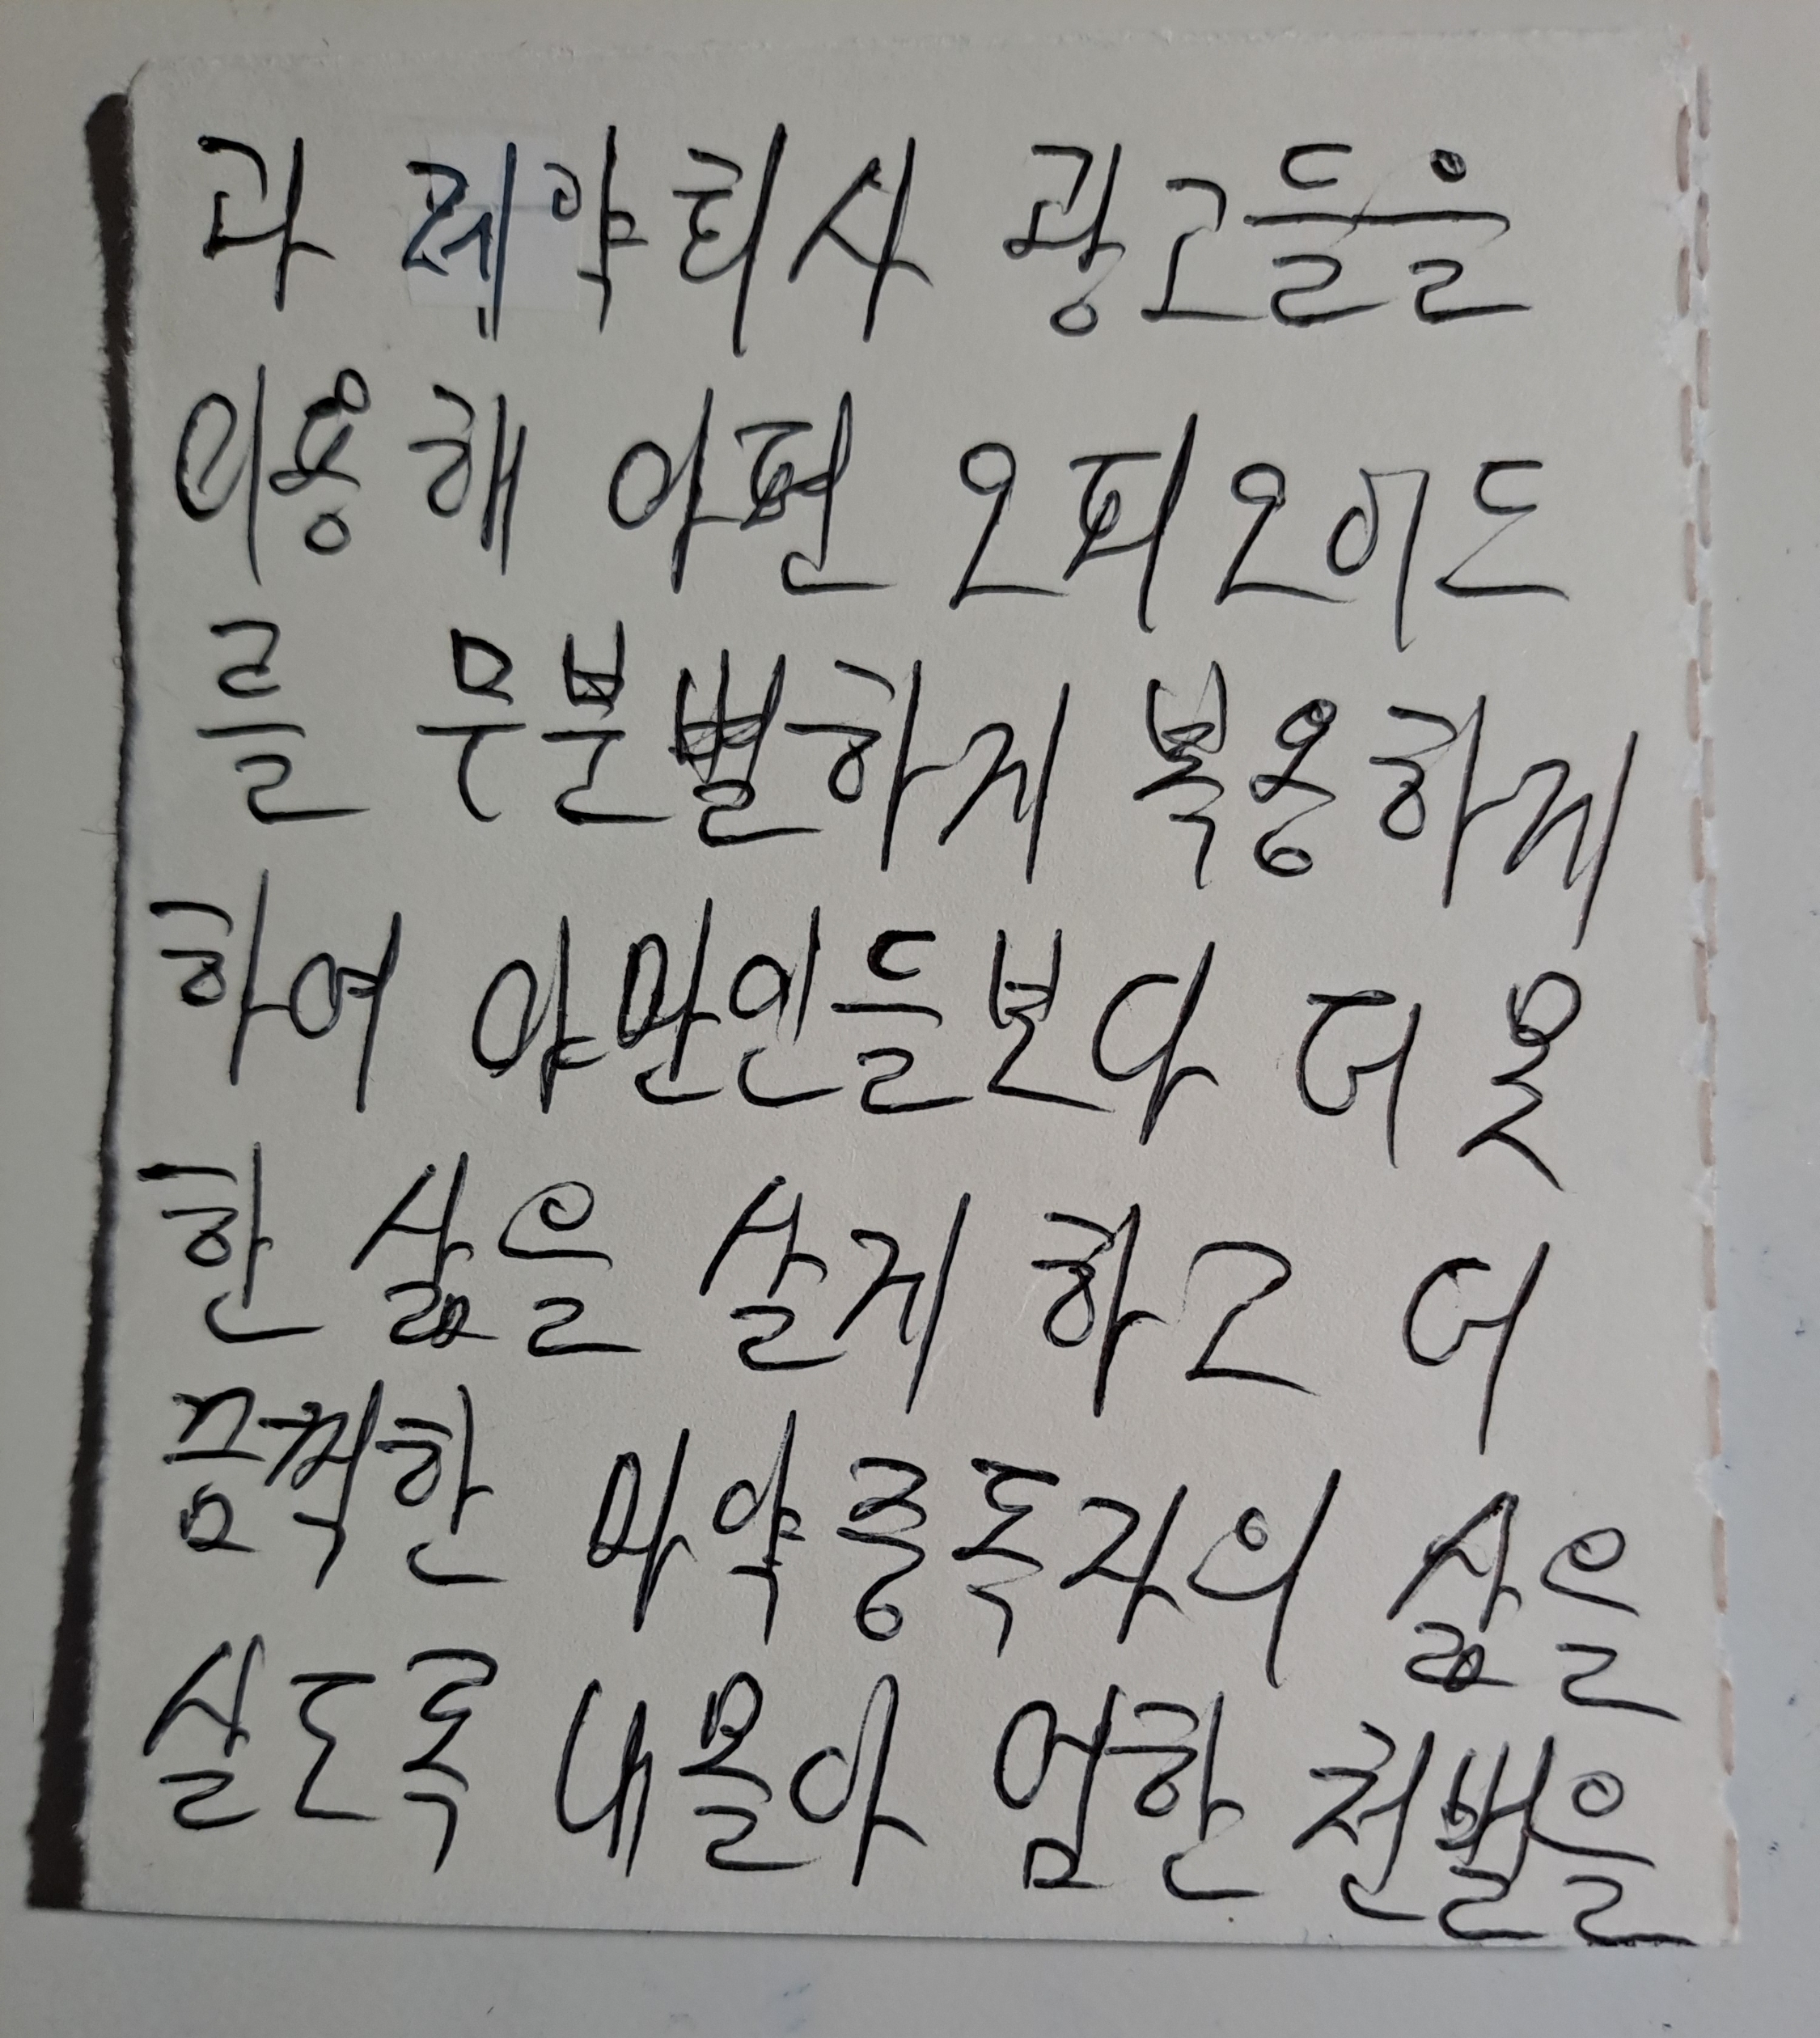 과 제약회사 광고들을
이용해 아편 오피오이드
를 무분별하게 복용하게
하여 야만인들보다 더 못
한 삶을 살게 하고 더
끔찍한 마약중독자의 삶을
살도록 내몰아 엄한 천벌을